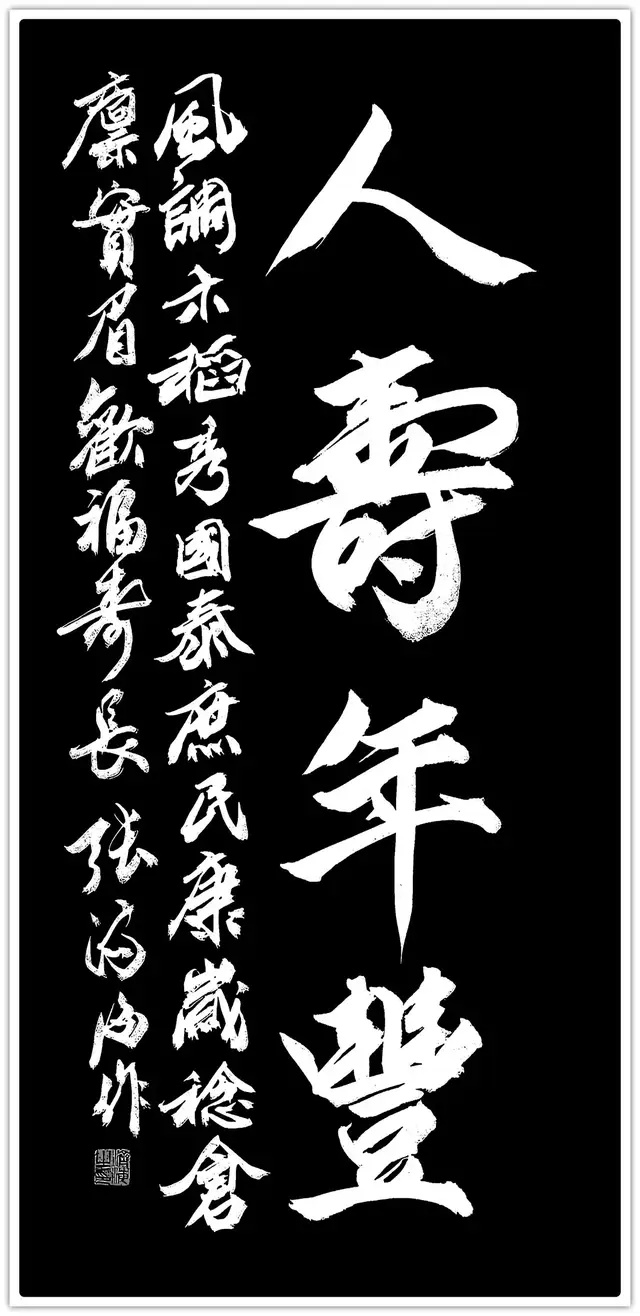 人壽年豐
風調禾稻秀國泰庶民康歲稔倉
廩實眉歡福寿長 張海作